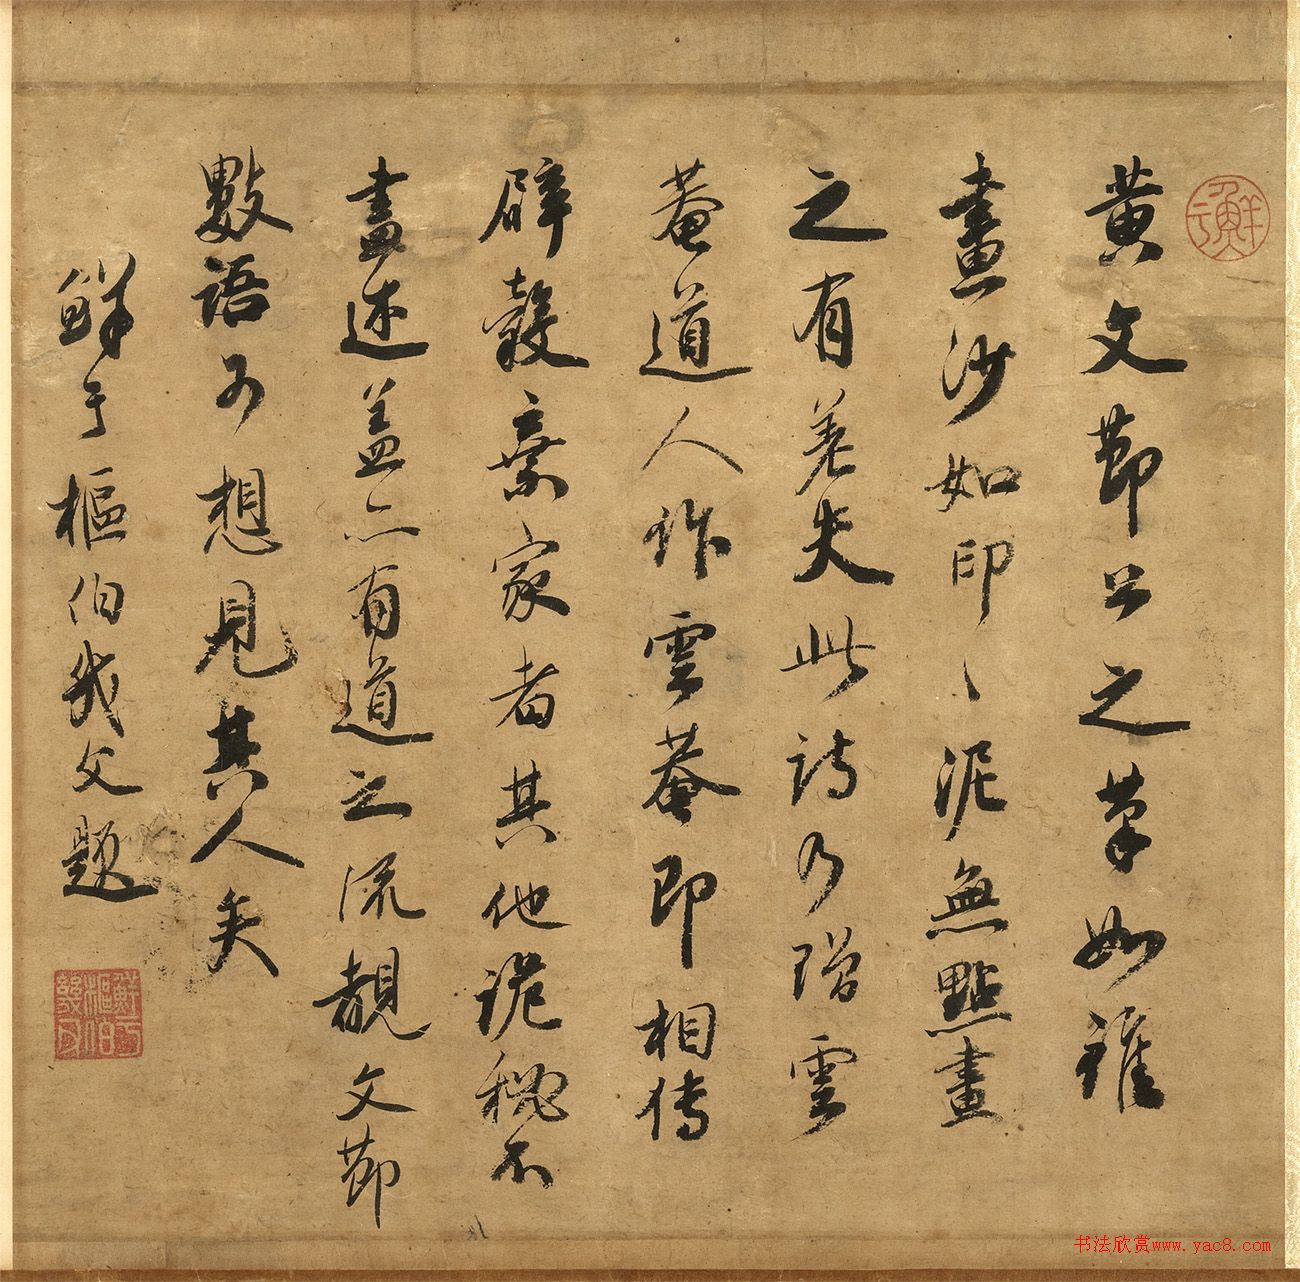 黄文節公之筆如錐
畫沙如印〻泥無點畫
之有差失此詩乃贈雲
菴道人作雲菴即相傳
辟穀棄家者其他詭秘不
盡述蓋亦有道之流觀文節
數語可想見其人矣
鮮于樞伯幾父題
鮮于
鮮于樞伯幾父
书法欣赏www.yac8.com